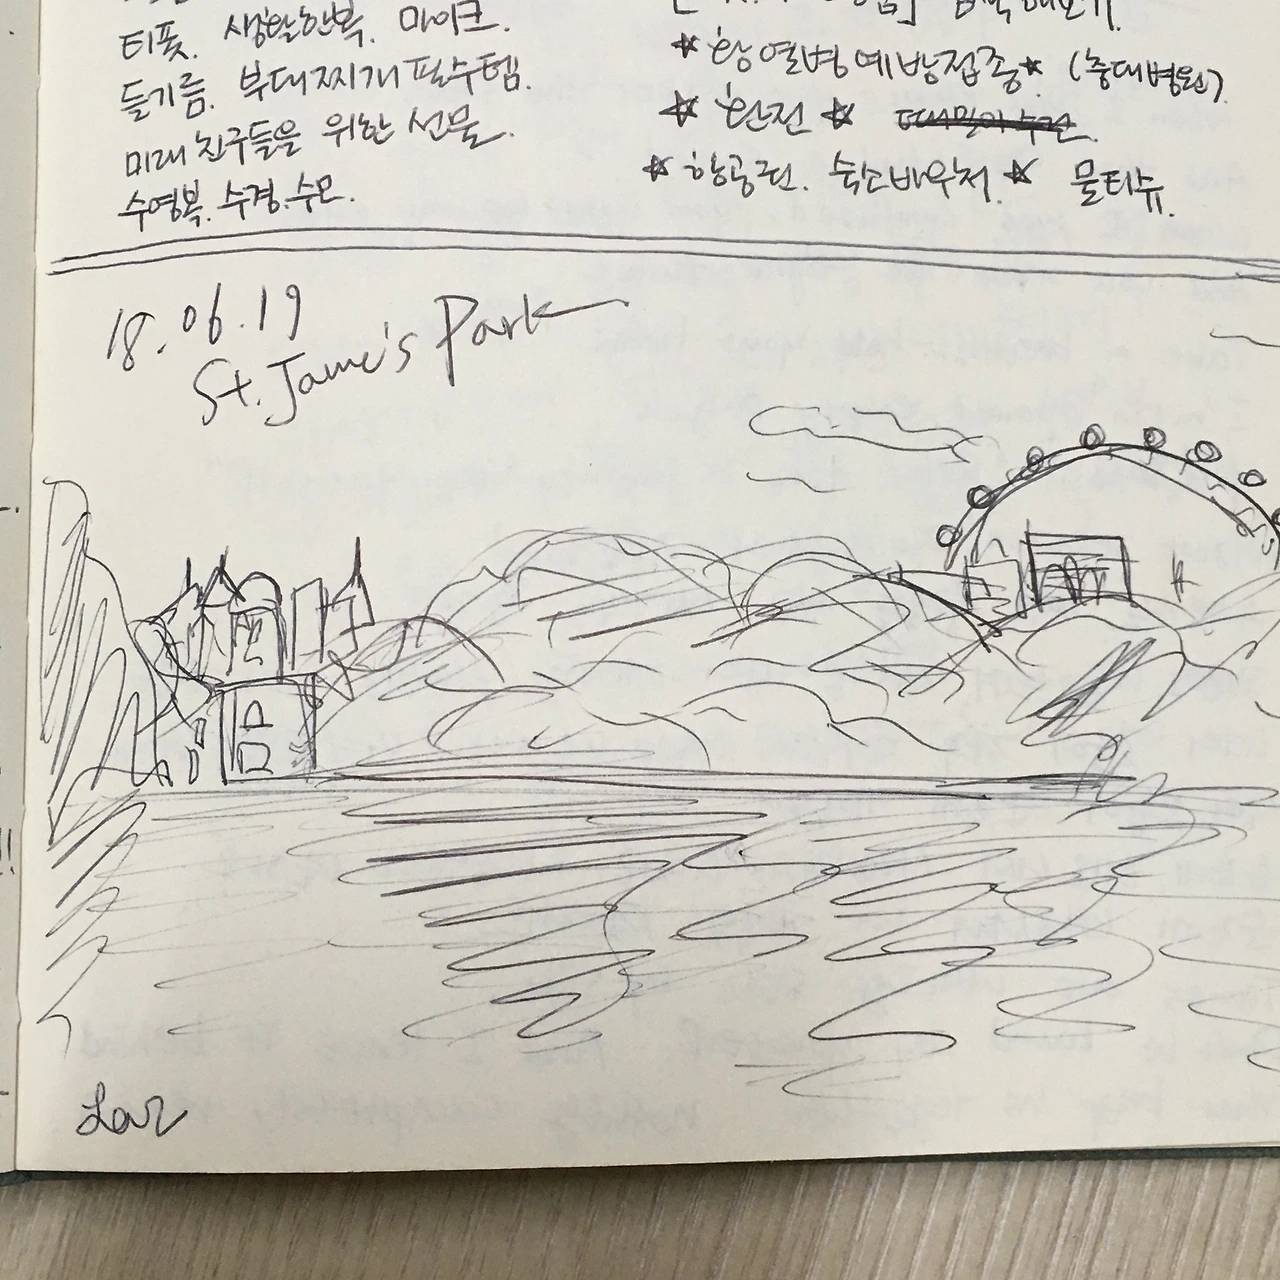 티폿. 생활한복. 마이크.
들기름. 부대찌개 필수템.
미래 친구들을 위한 선물.
수영복. 수경. 수모.
검색해보기.
☆ 황열병예방접종 ☆ (중대병원)
☆ 환전 ☆
☆ 항공권. 숙소바우처 ☆ 물티슈.
18.06.19
St. James's Park